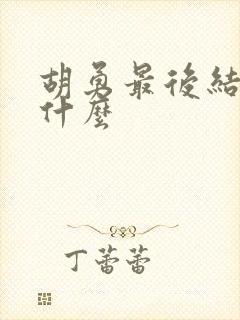 胡勇最後結
什麼
丁蕾蕾